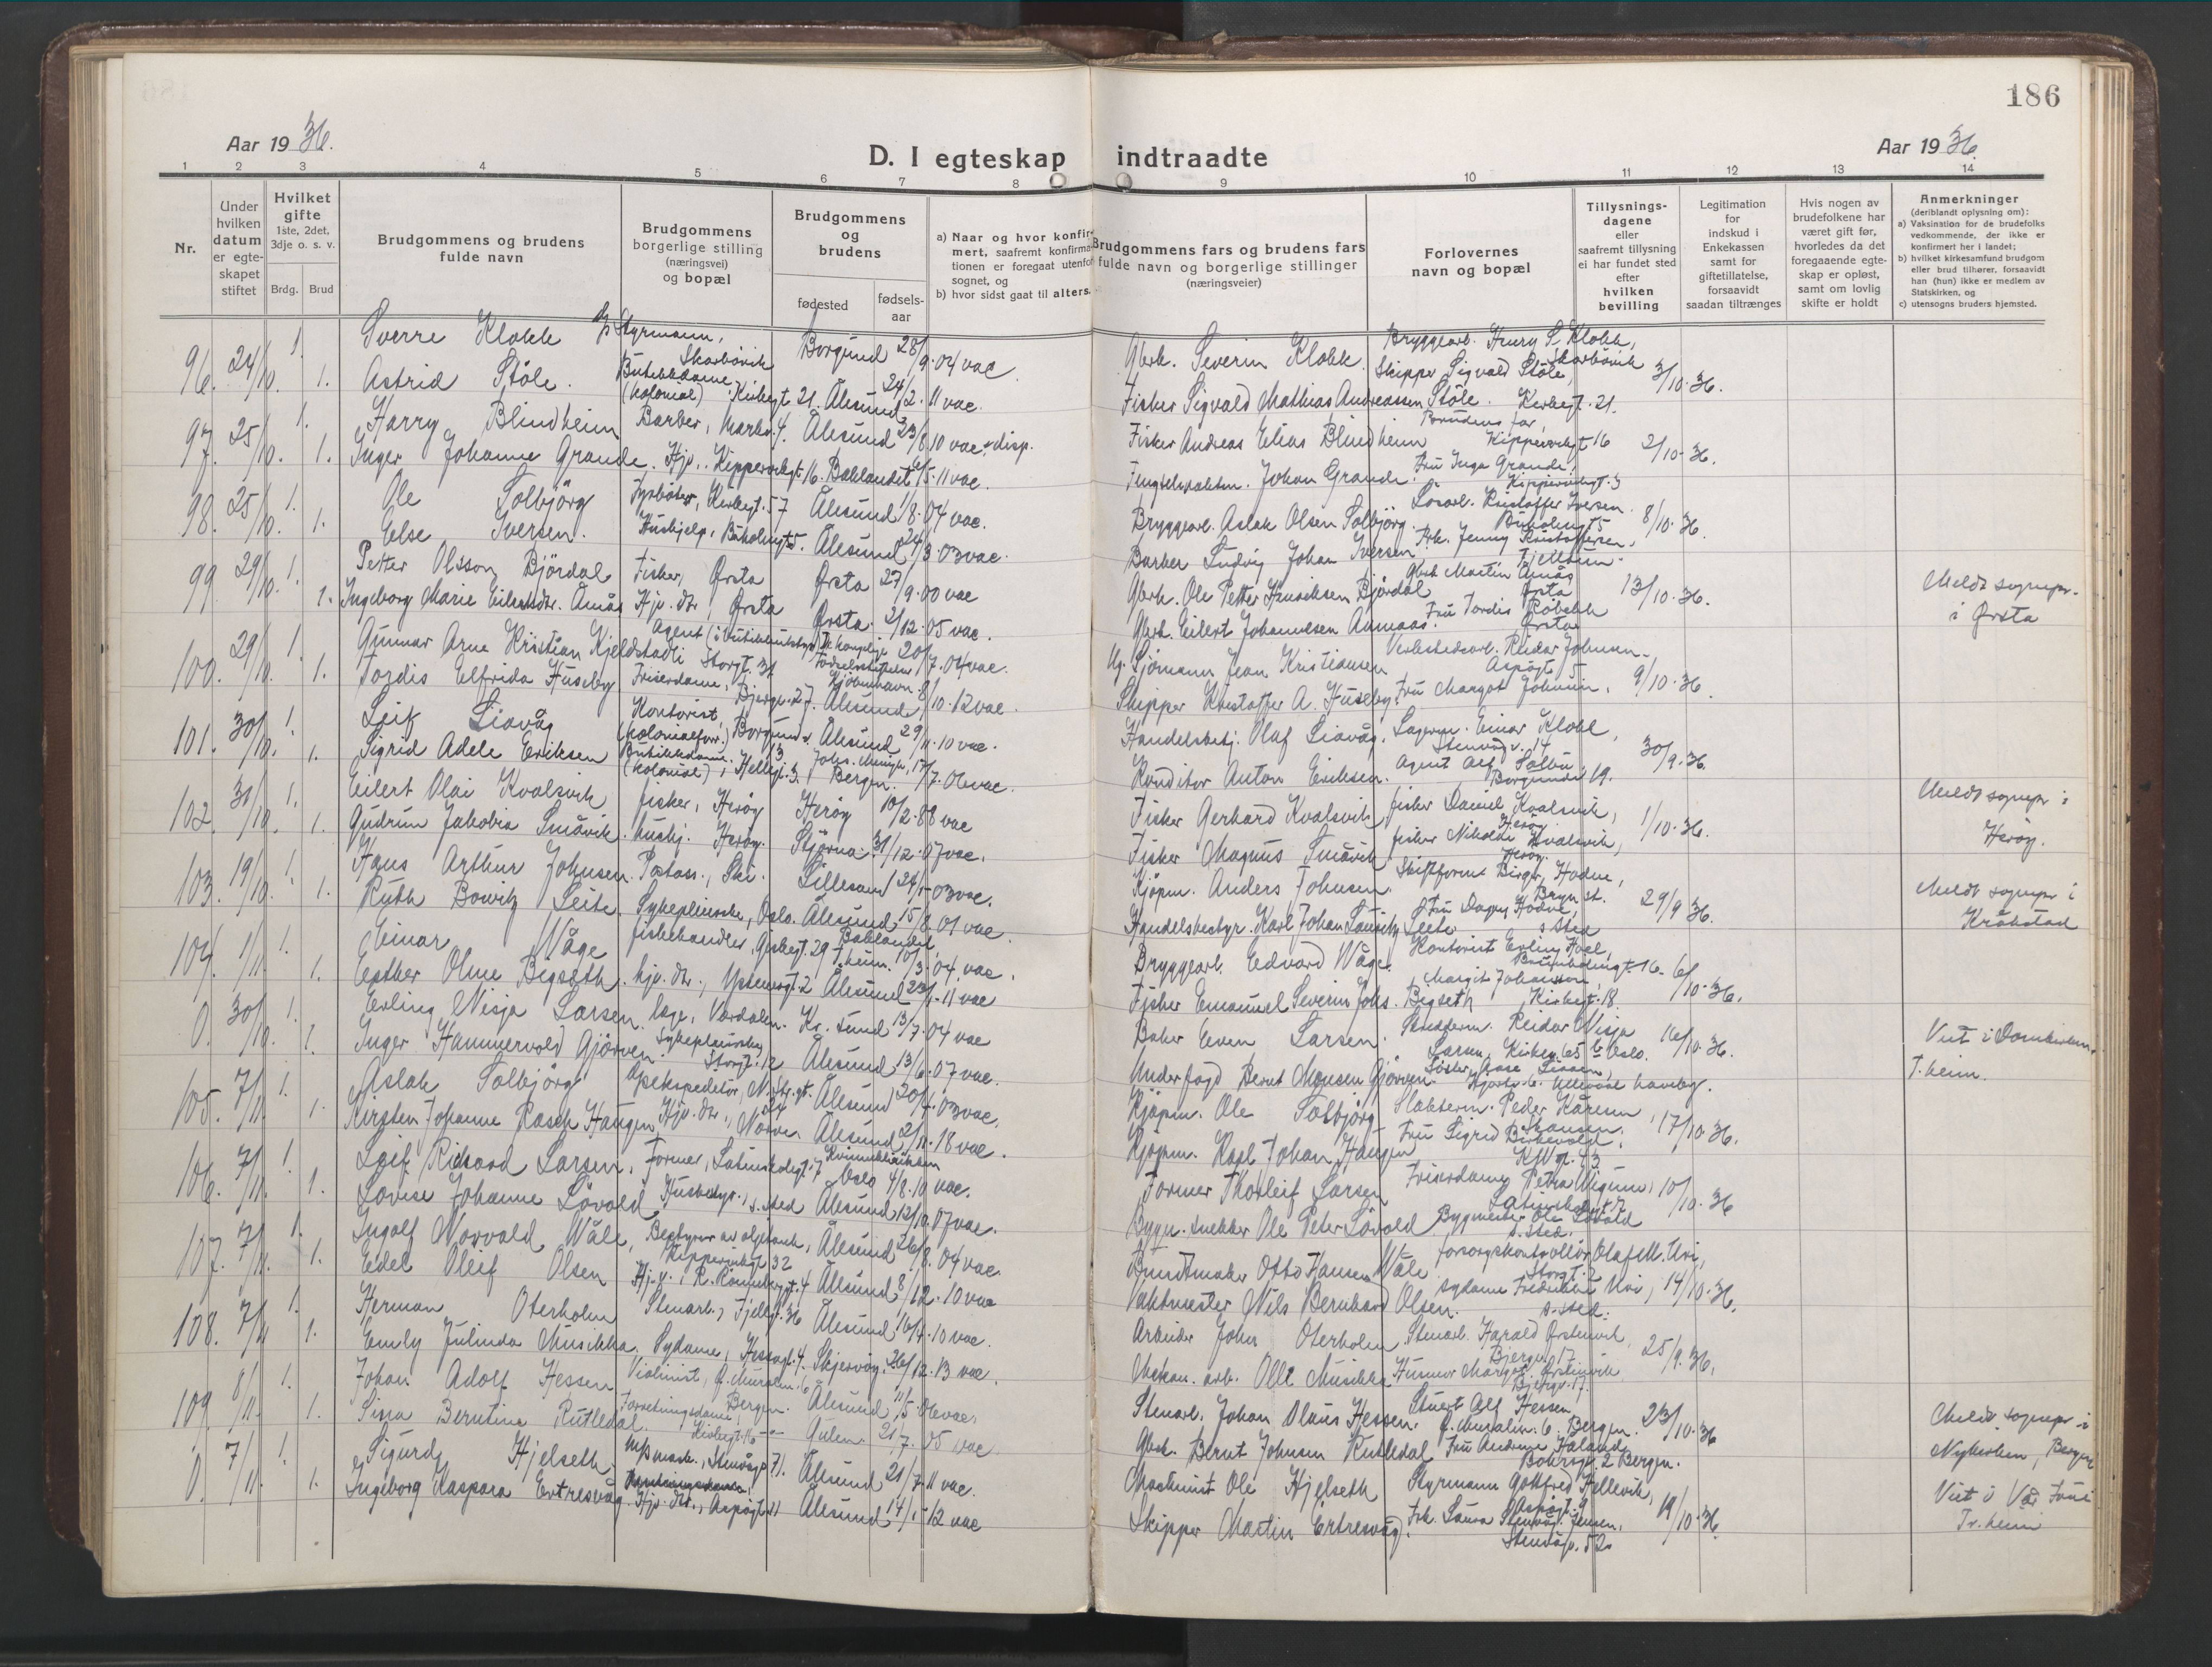 186
Aar 1936.
D. I egteskap indtraadte
Aar 1936.
1 2 3 4 5 6 7 8 9 10 11 12 13 14
Nr.
Under hvilken datum er egteskapet stiftet
Hvilket gifte 1ste, 2det, 3dje o. s. v.
Brdg. Brud
Brudgommens og brudens fulde navn
Brudgommens borgerlige stilling (næringsvei) og bopæl
Brudgommens og brudens
fødested
fødselsaar
a) Naar og hvor konfirmert, saafremt konfirmationen er foregaat utenfor sognet, og
b) hvor sidst gaat til alters.
Brudgommens fars og brudens fars fulde navn og borgerlige stillinger (næringsveier)
Forlovernes navn og bopæl
Tillysningsdagene eller saafremt tillysning ei har fundet sted efter hvilken bevilling
Legitimation for indskud i Enkekassen samt for giftetillatelse, forsaavidt saadan tiltrænges
Hvis nogen av brudefolkene har været gift før, hvorledes da det foregaaende egteskap er opløst, samt om lovlig skifte er holdt
Anmerkninger (deriblandt oplysning om):
a) Vaksination for de brudefolks vedkommende, der ikke er konfirmert her i landet;
b) hvilket kirkesamfund brudgom eller brud tilhører, forsaavidt han (hun) ikke er medlem av Statskirken, og
c) utensogns bruders hjemsted.
96. 24/10. 1. Sverre Klokk Styrmann, Skarbövik Borgund 28/9.04 vac Gbrk. Severin Klokk. Bryggearb. Henry S. Klokk, Skarbövik 3/10.36.
1. Astrid Stöle. Butikkdame (kolonial) Kirkegt. 21. Ålesund 24/2.11 vac. Fisker Sigvald Mathias Andreassen Stöle. Skipper Sigvald Stöle, Kirkegt. 21.
97. 25/10. 1. Harry Blindheim Barber, 4. Ålesund 23/8.10 vac. disp. Fisker Andreas Elias Blindheim Brudens far, Kippervikgt 16 2/10.36.
1. Inger Johanne Grande. Hjv., Kippervikgt. 16. Baklandet 6/5.11 vac. Johan Grande. Fru Inga Grande, Kippervikgt. 3
98. 25/10. 1. Ole Solbjörg Kirkegt. 57 Ålesund 1/8.04 vac. Bryggearb. Aslak Olsen Solbjörg. Kristoffer Iversen. 8/10.36.
1. Else Iversen. Hushjelp, Ålesund 24/3.03 vac. Barber Ludvig Johan Iversen Frk. Jenny Kristoffersen,
99 29/10. 1. Petter Olsson Björdal Fisker, Ørsta Ørsta 27/9.00 vac Gbrk. Ole Petter Henriksen Björdal Gbrk Martin Åmås Ørsta 13/10.36. Meldt sognepr. i Ørsta
1. Ingeborg Marie Eilertsdtr. Åmås Hjv. dtr, Ørsta Ørsta 2/12.05 vac. Gbrk. Eilert Johannesen Aamaas. Fru Tordis Ørsta
100. 29/10. 1. Gunnar Arne Kristian Kjeldstadli Agent Storgt. 31 Kjöbenhavn 20/7.04 vac. Ug. Sjömann Jean Kristiansen Verkstedarb. Reidar Johnsen, Aspøgt 5 9/10.36.
1. Tordis Elfrida Huseby Friserdame, 27. Ålesund 8/10.12 vac. Skipper Kristoffer A. Huseby. Fru Margot Johnsen.
101. 30/10. 1. Leif Liavåg Kontorist, Ålesund 29/11.10 vac. Handelsbetj. Olaf Liavåg. Lagerm. Einar Klokk, 14 30/9.36.
1. Sigrid Adele Eriksen Butikkdame (kolonial), Hellegt. 3 Bergen. 17/7.06 vac. Konditor Anton Eriksen. Agent Alf Solbu, 19.
102. 31/10. 1. Eilert Olai Kvalsvik fisker, Heröy Heröy 10/2.88 vac Fisker Gerhard Kvalsvik fisker Daniel Kvalsvik, Heröy 1/10.36. Meldt sognepr i Heröy.
1. Gudrun Jakobia Småvik. hushj. Heröy. 31/12.07 vac. Fisker Magnus Småvik fisker Nikolai Kvalsvik, Heröy.
103. 19/10. 1. Hans Arthur Johnsen. Postass., Ski. Lillesand 24/1.03 vac. Kjöpm. Anders Johnsen. Birger Hodne, Bryn st. 29/9 36. Meldt sognepr i Kråkstad
1. Ruth Bowitz Leite. Sykepleierske, Oslo. Ålesund 15/8.01 vac. Handelsbestyr. Karl Johan Lauritz Leite Fru Dagny Hodne, s sted
104. 1/11. 1. Einar Våge fiskehandler, 29 T.heim. 10/3.04 vac. Bryggearb. Edvard Våge. Kontorist Erling Hoel, 16. 6/10.36.
1. Esther Oline Bigseth. hjv. dtr., 2 Ålesund 23/1.11 vac Fisker Emanuel Severin Johs. Bigseth Margit Johansen, Kirkegt. 18
0. 30/10. 1. Erling Visja Larsen. læge, Verdalen. Kr. sund 13/7.04 vac Baker Even Larsen. Reidar Visja Larsen, 65 Oslo. 16/10.36. Viet i Domkirken. T.heim.
1. Inger Hammervold Gjörven. Sykepleierske, Storgt. 12 Ålesund 13/6.07 vac. Underfogd Bernt Monsen Gjörven Ullevål haveby.
105. 7/11. 1. Aslak Solbjörg Ålesund 20/7.03 vac. Kjöpm. Ole Solbjörg Peder Kåresen 17/10 36.
1. Kirsten Johanne Rasch Haugen Hjv. dtr., Nörve Ålesund 2/11.18 vac. Kjöpm. Karl Johan Haugen Fru Sigrid Birkevold.
106. 7/11. 1. Leif Rikard Larsen. Former, Latinskolegt. 7 Oslo 4/8.10 vac. Former Thorleif Larsen Friserdame Petra 10/10.36
1. Lovise Johanne Lövold Husbestyr., s. sted Ålesund 12/10.07 vac. Bygn. snekker Ole Peter Lövold Bygmester Ole Lövold s. sted.
107. 7/11. 1. Ingolf Norvald Våle, Kippervikgt 32 Ålesund 26/8.04 vac. Buntmaker Otto Hansen Våle Forsorgskontrollör Olaf M. Uri, Storgt. 2 14/10.36.
1. Edel Oleif Olsen R. Rönnebergt. 4 Ålesund 8/12.10 vac Vaktmester Nils Bernhard Olsen. Sydame Fredrikke Uri, s. sted.
108. 7/11 1. Herman Oterholm Stenarb., Fjellgt. 36 Ålesund 16/7.10 vac. Arbeider John Oterholm Stenarb. Harald Ørstenvik, 17 25/9.36.
1. Emly Julinda Musikka. Sydame, 4. Skjervöy. 26/12.13 vac. Mekan. arb. Olli Musikka Margot Ørstenvik 17.
109. 8/11. 1. Johan Adolf Hessen Violinist, Bergen. Ålesund 11/5.06 vac. Stenarb. Johan Olaus Hessen. Stuert Alf Hessen, Bergen. 23/10.36 Meldt sognepr i Nykirken, Bergen
1. Sina Berntine Rutledal. Forretningsdame, Gulen. 21/7.05 vac Gbrk. Bernt Johnsen Rutledal Fru Andrine Håland, 2 Bergen.
0. 7/11. 1. Sigurd Hjelseth. 71. Ålesund 21/7.11 vac. Maskinist Ole Hjelseth Styrmann Gottfred Fellevik, 19/10.36. Viet i Vår Frue Tr.heim
1. Ingeborg Kaspara Ertresvåg. Hjv. dtr., Aspögt. 11 Ålesund 14/1.12 vac Skipper Martin Ertresvåg. Frk. Laura Jensen, Stenvågv. 52.